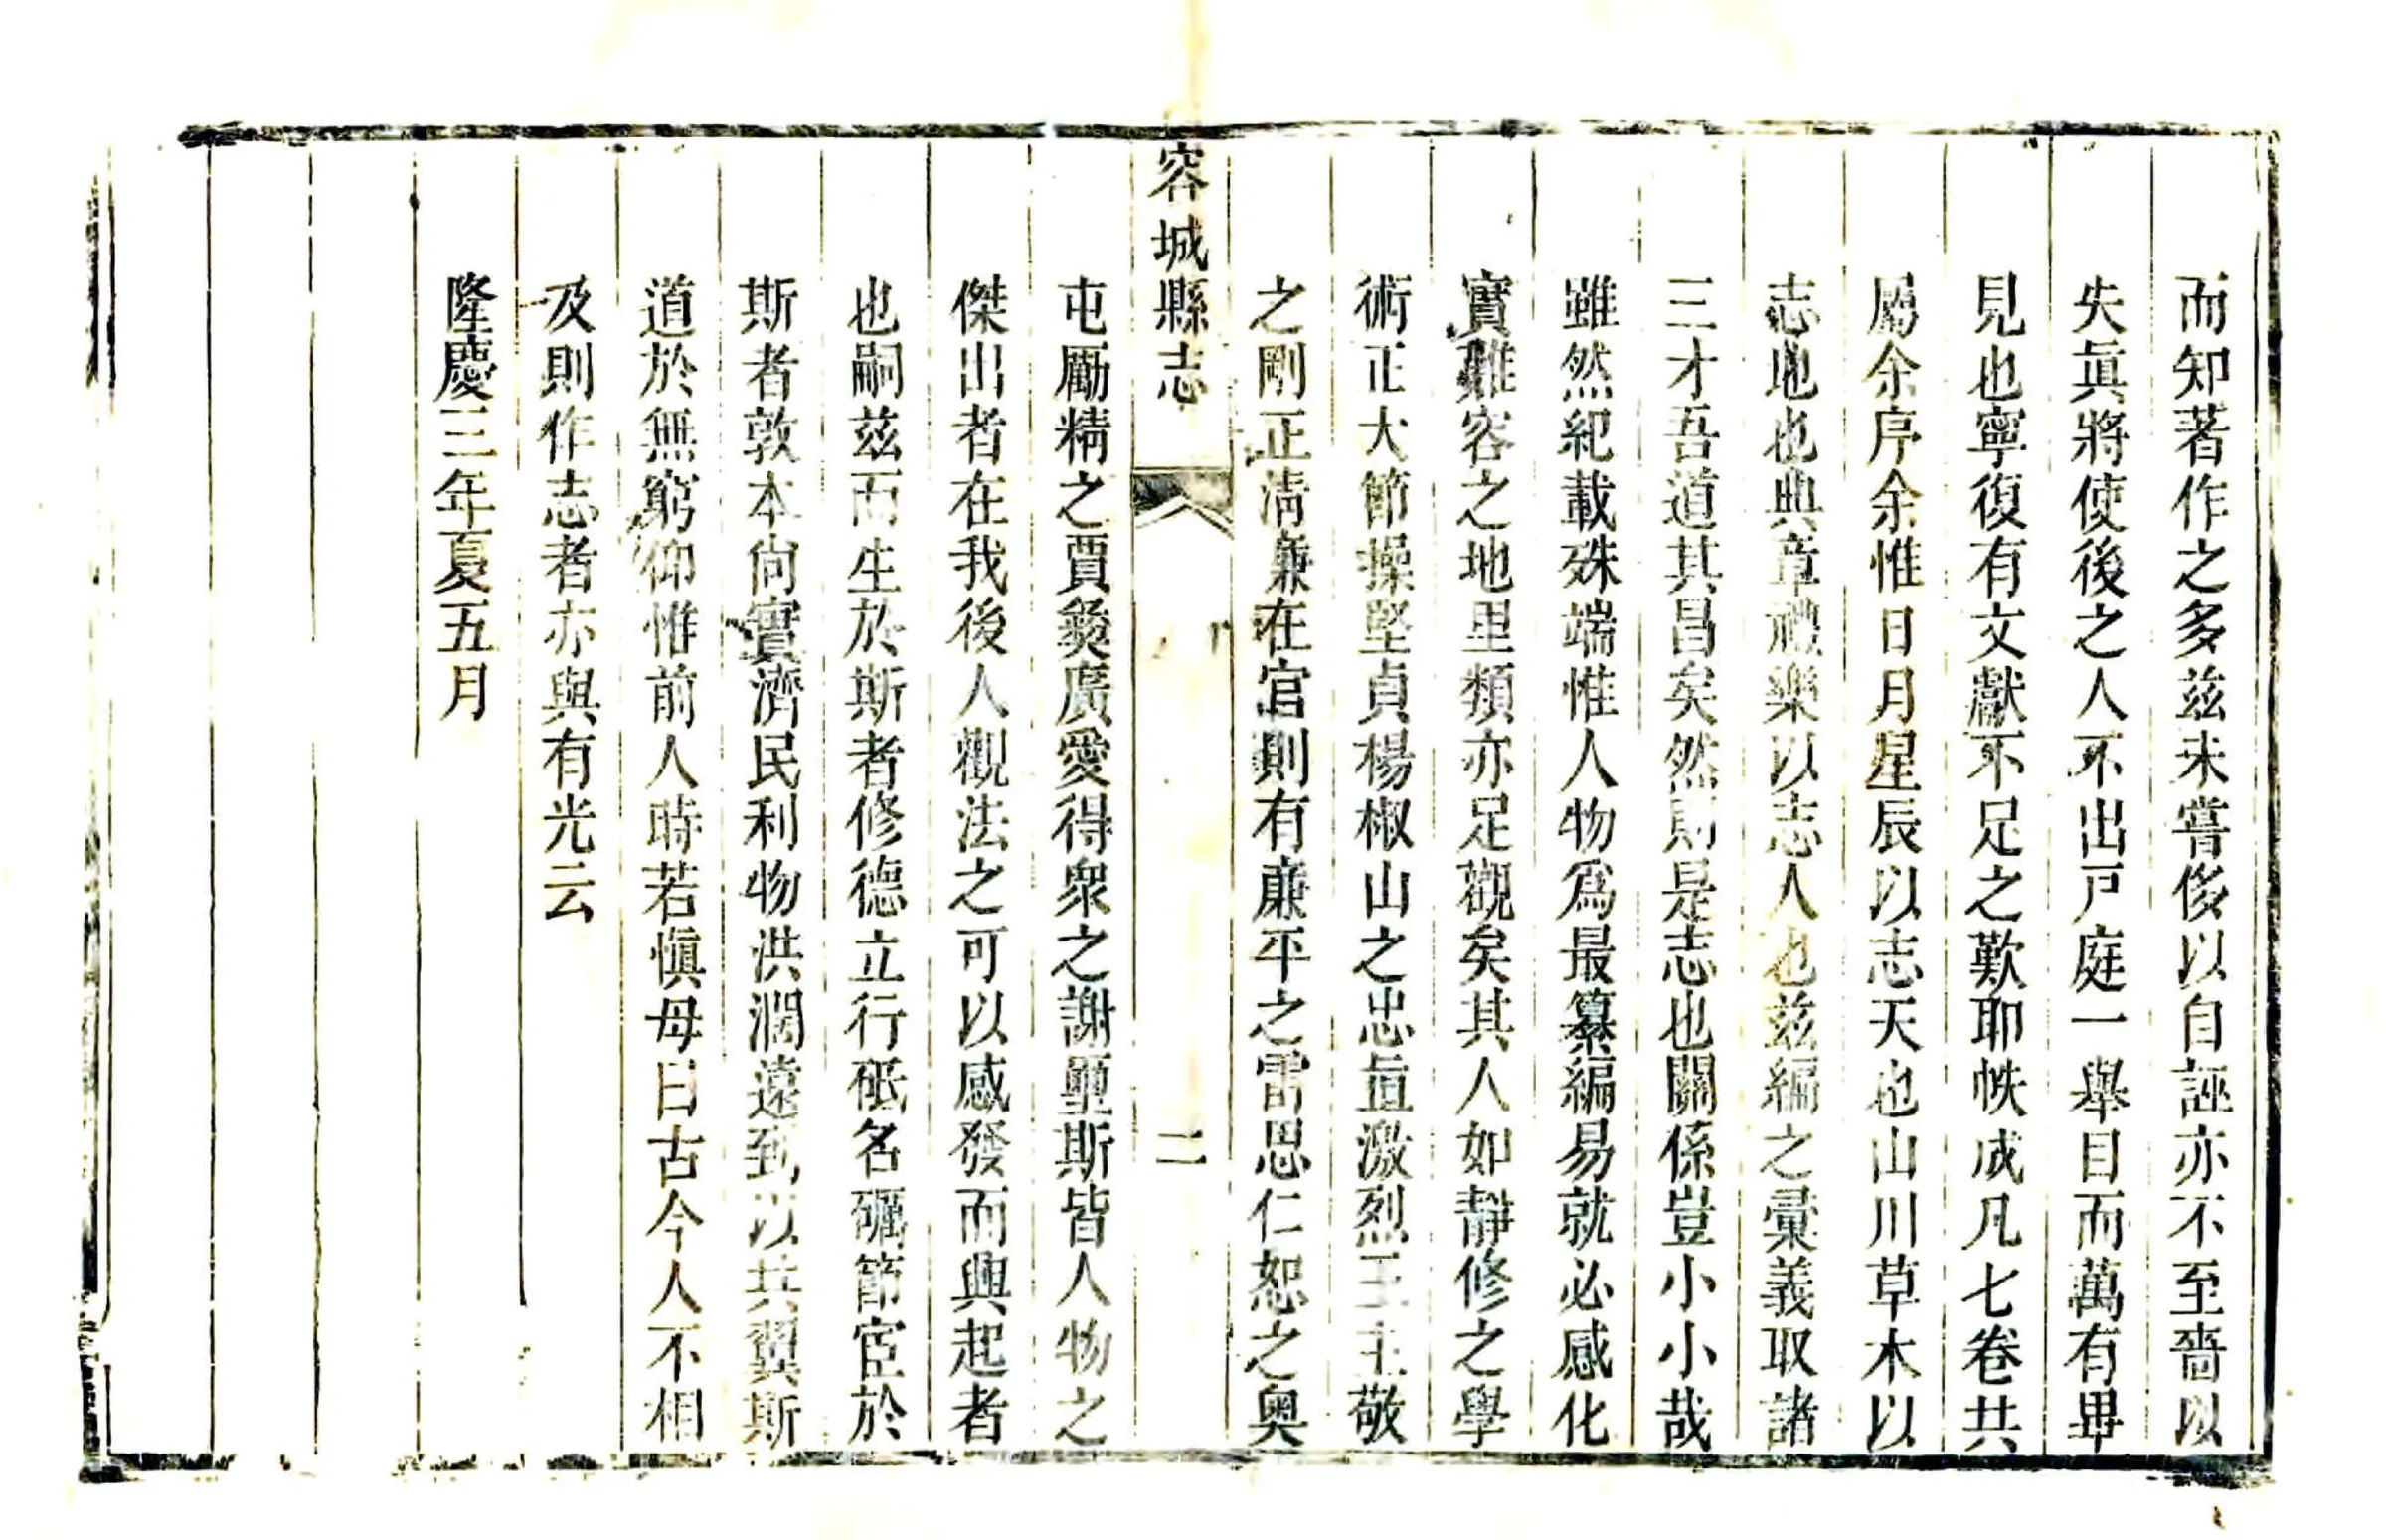 而知著作之多茲未嘗侈以自誣亦不至嗇以
失眞將使後之人不出戸庭一舉目而萬有畢
見也寧復有文獻不足之歎耶帙成凡七卷共
屬余序余惟日月星辰以志天也山川草木以
志地也典章禮樂以志人也茲編之彙義取諸
三才吾道其昌矣然則是志也關係豈小小哉
雖然紀載殊端惟人物爲最纂編易就必感化
實難容之地里類亦足觀矣其人如靜修之學
術正大節操堅貞楊椒山之忠直激烈王主敬
之剛正清亷在官則有亷平之雷思仁恕之奧
容城縣志
二
屯勵精之賈彛廣愛得衆之謝璽斯皆人物之
傑出者在我後人觀法之可以感發而興起者
也嗣茲而生於斯者修德立行砥名礪節宦於
斯者敦本尚實濟民利物洪濶遠到以共翼斯
道於無窮仰惟前人時若愼毋曰古今人不相
及則作志者亦與有光云
隆慶三年夏五月